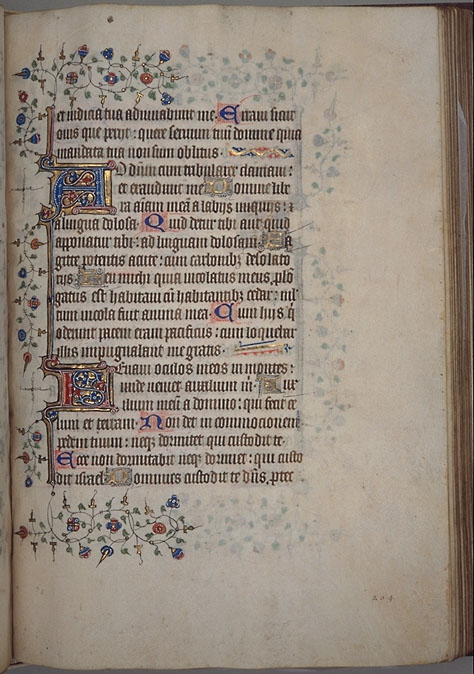 et iudicia tua adiuvabunt me. Erravi sicut
ovis que periit: quere servum tuum domine quia
mandata tua non sum oblitus.
Ad dnm cum tribularer clamavi:
et exaudivit me. Domine libe
ra aiam meā a labijs iniquis: z
a lingua dolosa. Quid detur tibi aut quid
apponatur tibi: ad linguam dolosam. Sa
gitte potentis acute: cum carbonibz desolato
rijs. Heu michi quia incolatus meus plō
gatus est habitavi cū habitantibz cedar: mul
tum incola fuit anima mea. Cum hijs q
oderunt pacem eram pacificus: cum loquebar
illis impugnabant me gratis.
Levavi oculos meos in montes:
unde veniet auxilium m. Aux
ilium meū a domino: qui fecit ce
lum et terram. Non det in commotionem
pedem tuum: neqz dormitet qui custodit te.
Ecce non dormitabit neqz dormiet: qui custo
dit israel. Dominus custodit te dns ptec
204